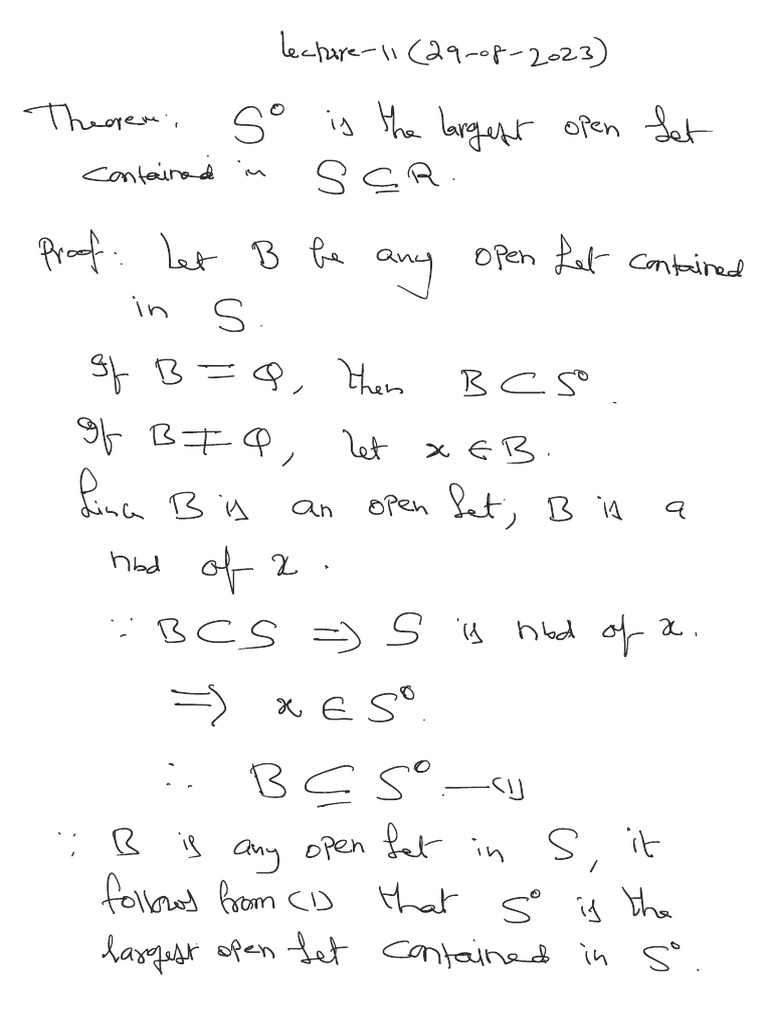 Lecture-11 (29-08-2023)
Theorem: S⁰ is the largest open set
contained in S ⊆ R.
Proof: Let B be any open set contained
in S.
If B = φ, then B ⊂ S⁰.
If B ≠ φ, let x ∈ B.
Since B is an open set, B is a
nbd of x.
∵ B ⊂ S ⇒ S is nbd of x.
⇒ x ∈ S⁰.
∴ B ⊆ S⁰. —(1)
∵ B is any open set in S, it
follows from (1) that S⁰ is the
largest open set contained in S⁰.